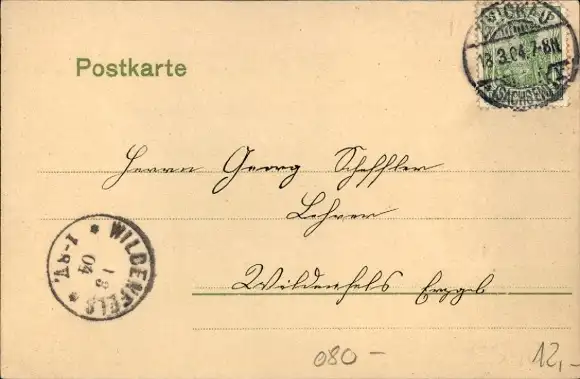 Postkarte
ZWICKAU
18.3.04. 7-8N
(SACHSEN)
Herrn Georg Scheffler
Lehrer
Wildenfels Erzgb
WILDENFELS
18
04
080-
12,-